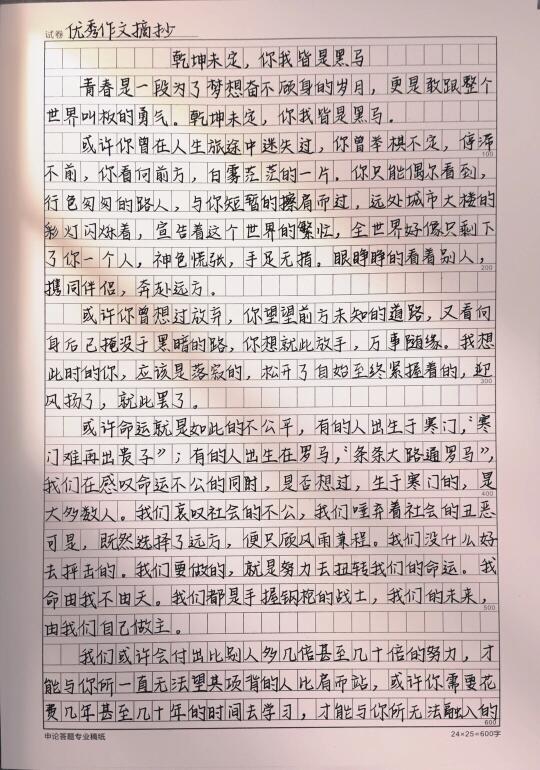 试卷 优秀作文摘抄
乾坤未定，你我皆是黑马
青春是一段为了梦想奋不顾身的岁月，更是敢跟整个
世界叫板的勇气。乾坤未定，你我皆是黑马。
或许你曾在人生旅途中迷失过，你曾举棋不定，停滞
100
不前，你看向前方，白雾茫茫的一片。你只能偶尔看到，
行色匆匆的路人，与你短暂的擦肩而过，远处城市大楼的
彩灯闪烁着，宣告着这个世界的繁忙，全世界好像只剩下
了你一个人，神色慌张，手足无措。眼睁睁的看着别人，
200
携同伴侣，奔赴远方。
或许你曾想过放弃，你望望前方未知的道路，又看向
身后已掩没于黑暗的路，你想就此放手，万事随缘。我想
此时的你，应该是落寂的，松开了自始至终紧握着的，迎
300
风扬了，就此罢了。
或许命运就是如此的不公平，有的人出生于寒门，“寒
门难再出贵子”；有的人出生在罗马，“条条大路通罗马”，
我们在感叹命运不公的同时，是否想过，生于寒门的，是
400
大多数人。我们哀叹社会的不公，我们唾弃着社会的丑恶
可是，既然选择了远方，便只顾风雨兼程。我们没什么好
去抨击的。我们要做的，就是努力去扭转我们的命运。我
命由我不由天。我们都是手握钢枪的战士，我们的未来，
500
由我们自己做主。
我们或许会付出比别人多几倍甚至几十倍的努力，才
能与你所一直无法望其项背的人比肩而站，或许你需要花
费几年甚至几十年的时间去学习，才能与你所无法融入的
600
申论答题专业稿纸 24×25=600字